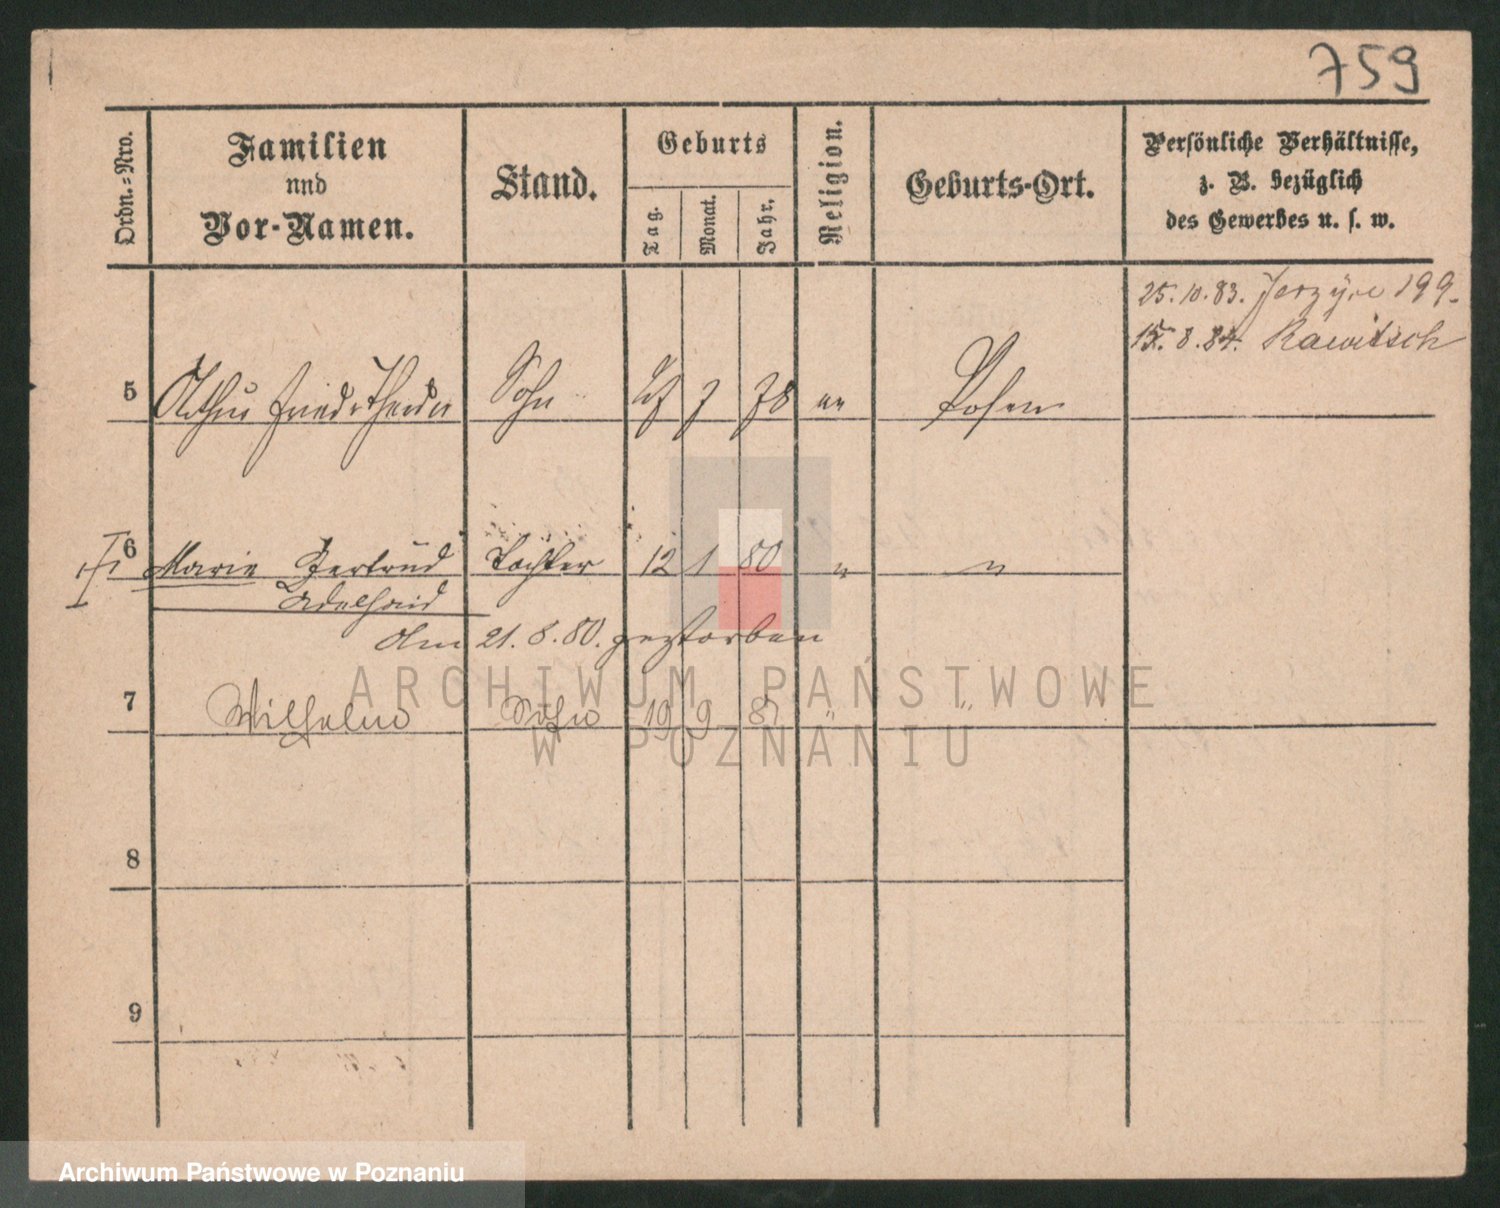 759
Ordn.=Nro.
Familien
und
Vor-Namen.
Stand.
Geburts
Tag.
Monat.
Jahr.
Religion.
Geburts-Ort.
Persönliche Verhältnisse,
z. B. bezüglich
des Gewerbes u. s. w.
25.10.83.
15.8.84. Rawitsch
5 Sohn 7 78 Posen
6 Marie Gertrud Tochter 12 1 80 " "
Adelhaid
Am 21.8.80. gestorben
7 Wilhelm Sohn 19 9 81 " "
8
9
ARCHIWUM PAŃSTWOWE
W POZNANIU
Archiwum Państwowe w Poznaniu